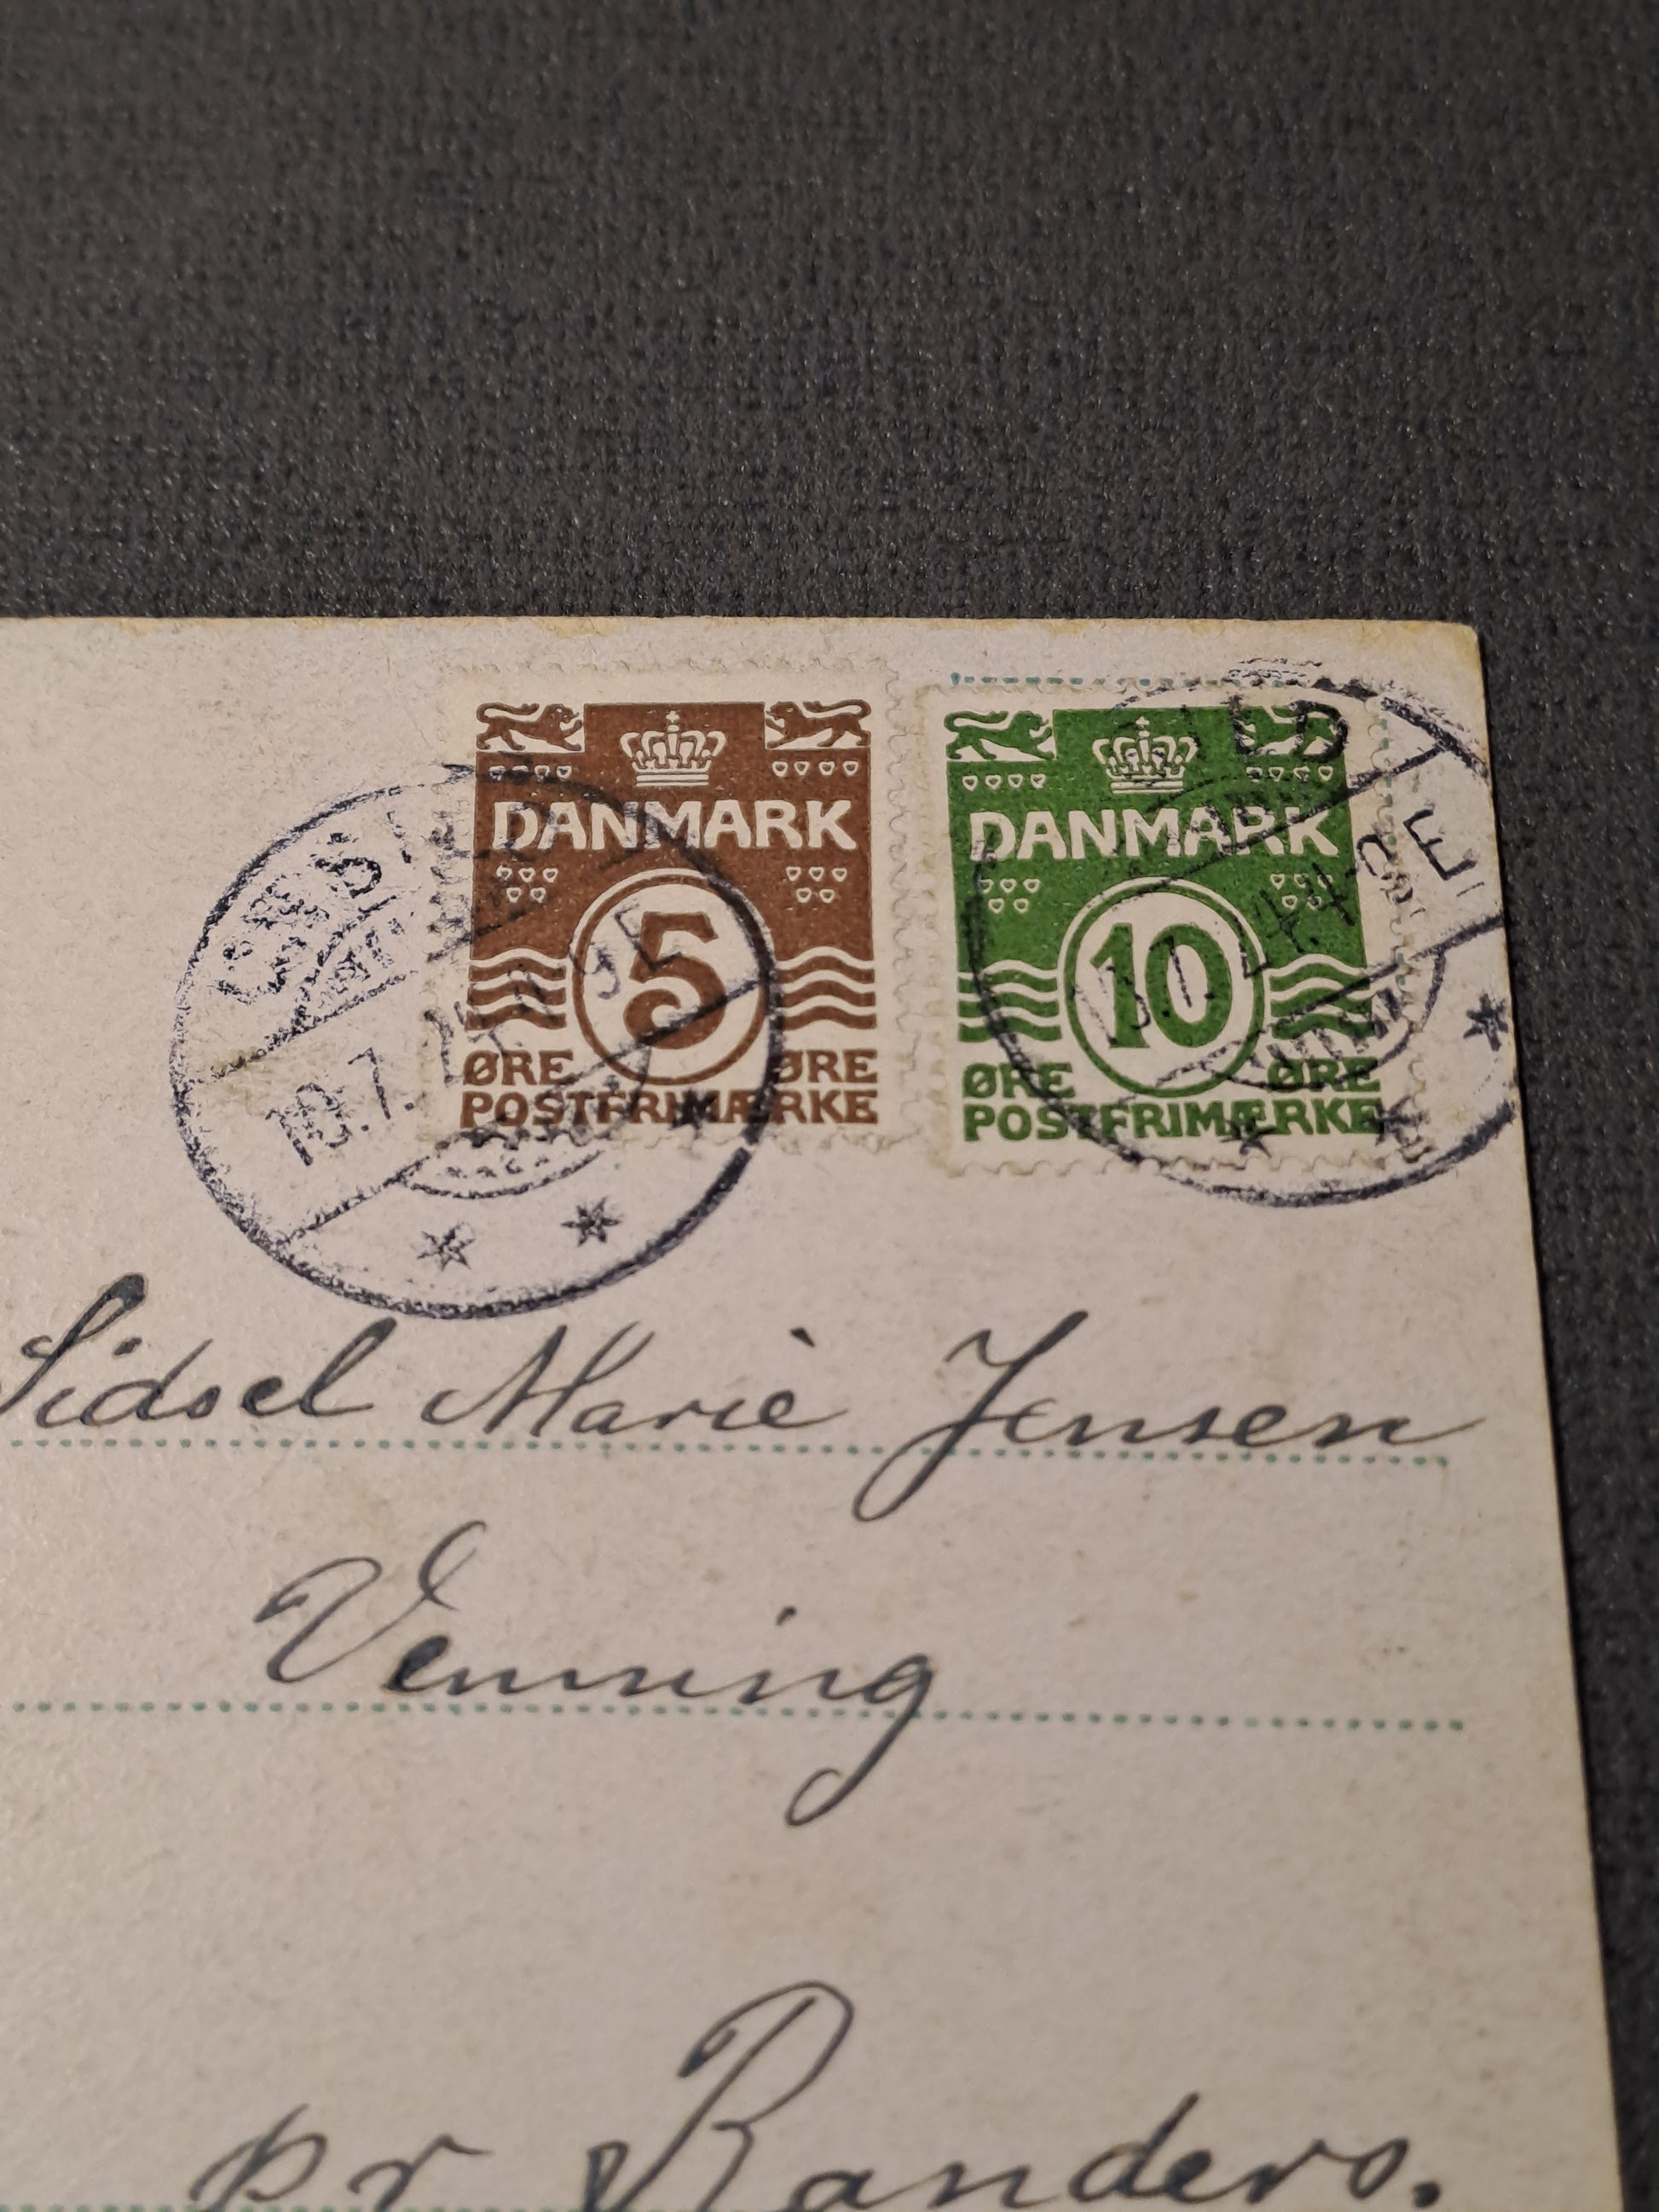 DANMARK
5
ØRE ØRE
POSTFRIMÆRKE
DANMARK
10
ØRE ØRE
POSTFRIMÆRKE
Sidsel Marie Jensen
Venning
pr Randers.